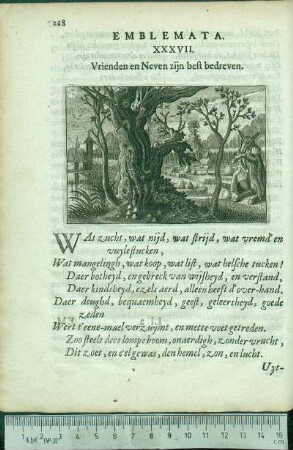 268
EMBLEMATA.
XXXVII.
Vrienden en Neven zijn best bedreven.
WAt zucht, wat nijd, wat strijd, wat vremd en
vuyle stucken,
Wat mangelingh, wat koop, wat list, wat helsche tucken!
Daer botheyd, en gebreck van wijsheyd, en verstand,
Daer kindsheyd, ezels aerd, alleen heeft d'over-hand.
Daer deughd, bequaemheyd, geest, geleertheyd, goede
zeden
Wert t'eene-mael verzuymt, en mette voet getreden.
Zoo steelt dees lompe boom, onaerdigh, zonder vrucht,
Dit zoet, en eel gewas, den hemel, zon, en lucht.
Uyt-
0 1 2 3 4 5 6 7 8 9 10 11 12 13 14 15 16